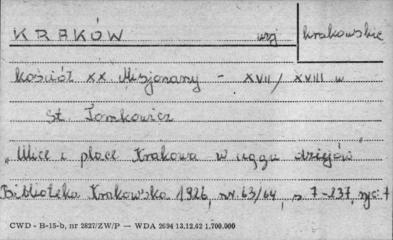 KRAKÓW woj krakowskie
kościół xx Misjonarzy - XVII/XVIII w
St. Tomkowicz
"Ulice i place Krakowa w ciągu dziejów"
Biblioteka Krakowska 1926, nr 63/64, s 7-237, ryc. 7
CWD - B-15-b, nr 2827/ZW/P — WDA 2694 13.12.62 1.700.000